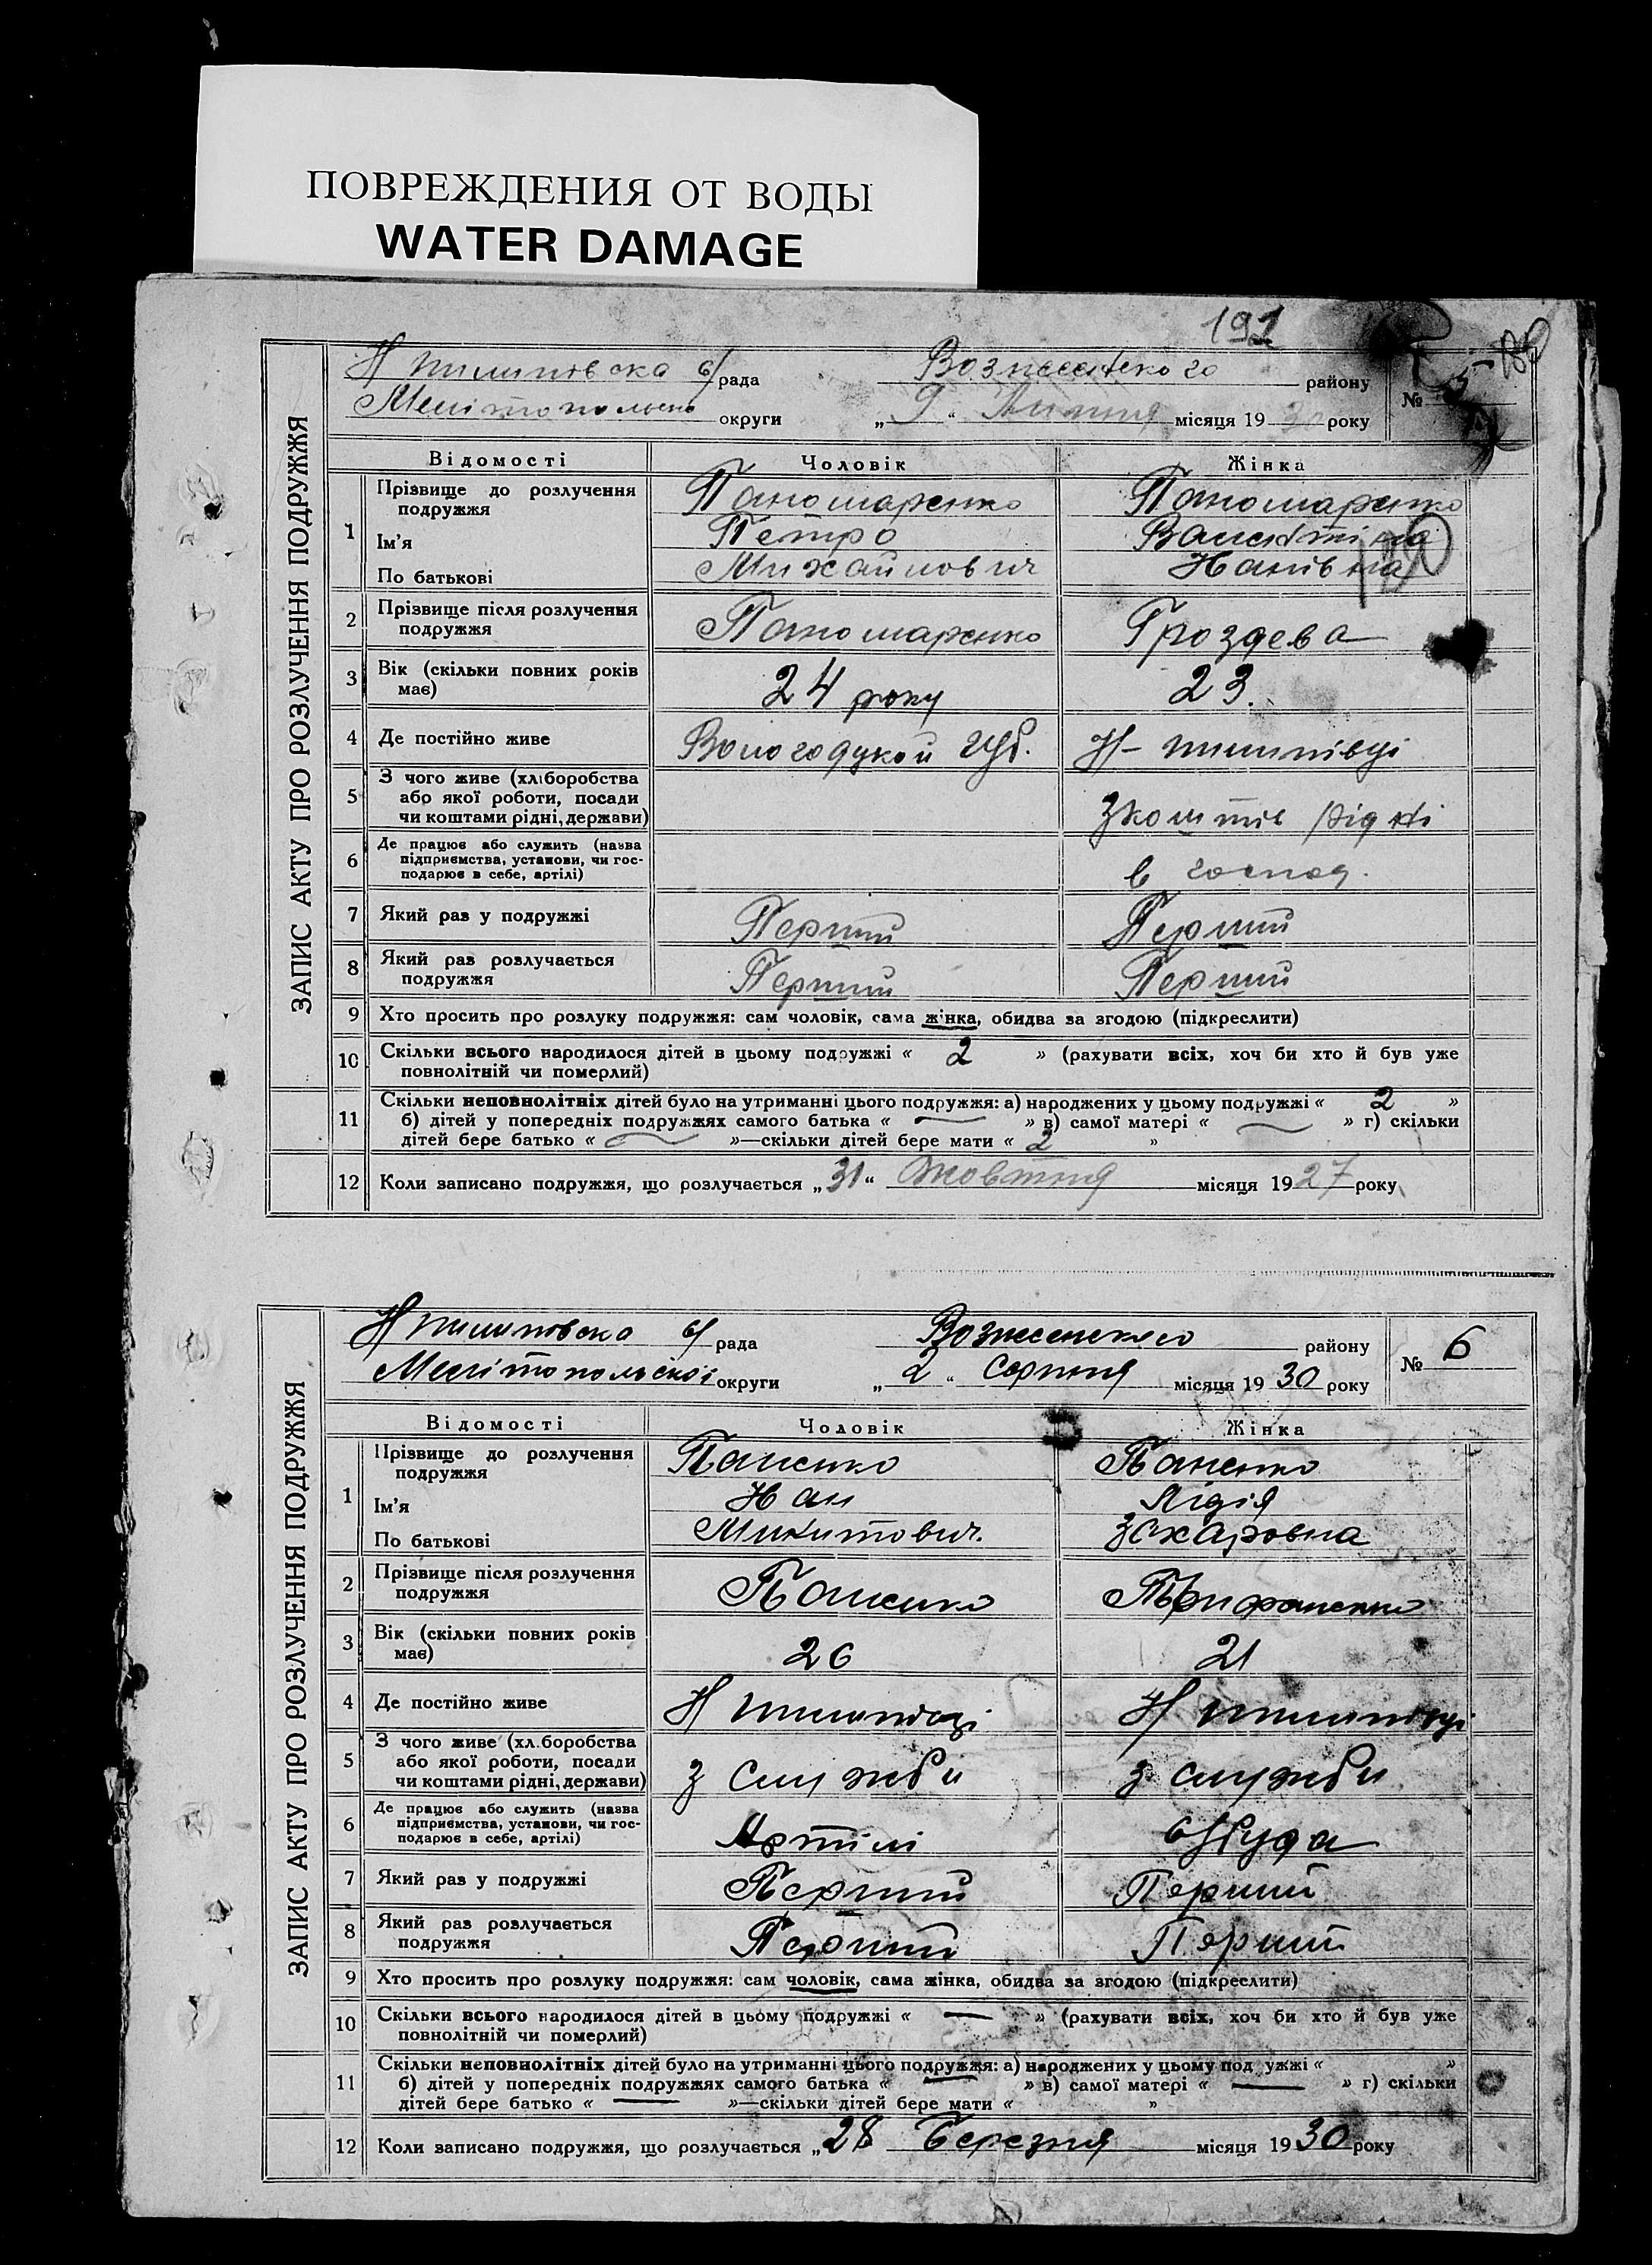 ПОВРЕЖДЕНИЯ ОТ ВОДЫ
WATER DAMAGE
191
ЗАПИС АКТУ ПРО РОЗЛУЧЕННЯ ПОДРУЖЖЯ
Н Пилипівска с/рада Вознесенського району № 5
Мелітопольськ округи „ 9 “ Липня місяця 19 30 року
Відомості Чоловік Жінка
1 Прізвище до розлучення подружжя Паномаренко Паномаренко
Ім'я Петро Валентіна
По батькові Михайлович Іванівна
190
2 Прізвище після розлучення подружжя Паномаренко Гроздева
3 Вік (скільки повних років має) 24 року 23.
4 Де постійно живе Вологодцкой губ. Н-Пилипівці
5 З чого живе (хліборобства або якої роботи, посади чи коштами рідні, держави) З коштів рідні
6 Де працює або служить (назва підприємства, установи, чи господарює в себе, артілі) в господ.
7 Який раз у подружжі Перший Перший
8 Який раз розлучається подружжя Перший Перший
9 Хто просить про розлуку подружжя: сам чоловік, сама жінка, обидва за згодою (підкреслити)
10 Скільки всього народилося дітей в цьому подружжі « 2 » (рахувати всіх, хоч би хто й був уже
повнолітній чи померлий)
11 Скільки неповнолітніх дітей було на утриманні цього подружжя: а) народжених у цьому подружжі « 2 »
б) дітей у попередніх подружжях самого батька « — » в) самої матері « — » г) скільки
дітей бере батько « — »—скільки дітей бере мати « 2 »
12 Коли записано подружжя, що розлучається „ 31 “ Жовтня місяця 19 27 року
ЗАПИС АКТУ ПРО РОЗЛУЧЕННЯ ПОДРУЖЖЯ
Н Пилипівска с/рада Вознесенського району № 6
Мелітопольської округи „ 2 “ Серпня місяця 19 30 року
Відомості Чоловік Жінка
1 Прізвище до розлучення подружжя Паненко Паненко
Ім'я Іван Лідія
По батькові Микитович. Захаровна
2 Прізвище після розлучення подружжя Паненко Трифаненко
3 Вік (скільки повних років має) 26 21
4 Де постійно живе Н Пилипівці Н Пилипівці
5 З чого живе (хліборобства або якої роботи, посади чи коштами рідні, держави) З служби З служби
6 Де працює або служить (назва підприємства, установи, чи господарює в себе, артілі) Артілі
7 Який раз у подружжі Перший Перший
8 Який раз розлучається подружжя Перший Перший
9 Хто просить про розлуку подружжя: сам чоловік, сама жінка, обидва за згодою (підкреслити)
10 Скільки всього народилося дітей в цьому подружжі « — » (рахувати всіх, хоч би хто й був уже
повнолітній чи померлий)
11 Скільки неповнолітніх дітей було на утриманні цього подружжя: а) народжених у цьому подружжі « »
б) дітей у попередніх подружжях самого батька « » в) самої матері « — » г) скільки
дітей бере батько « — »—скільки дітей бере мати « »
12 Коли записано подружжя, що розлучається „ 28 Березня місяця 19 30 року